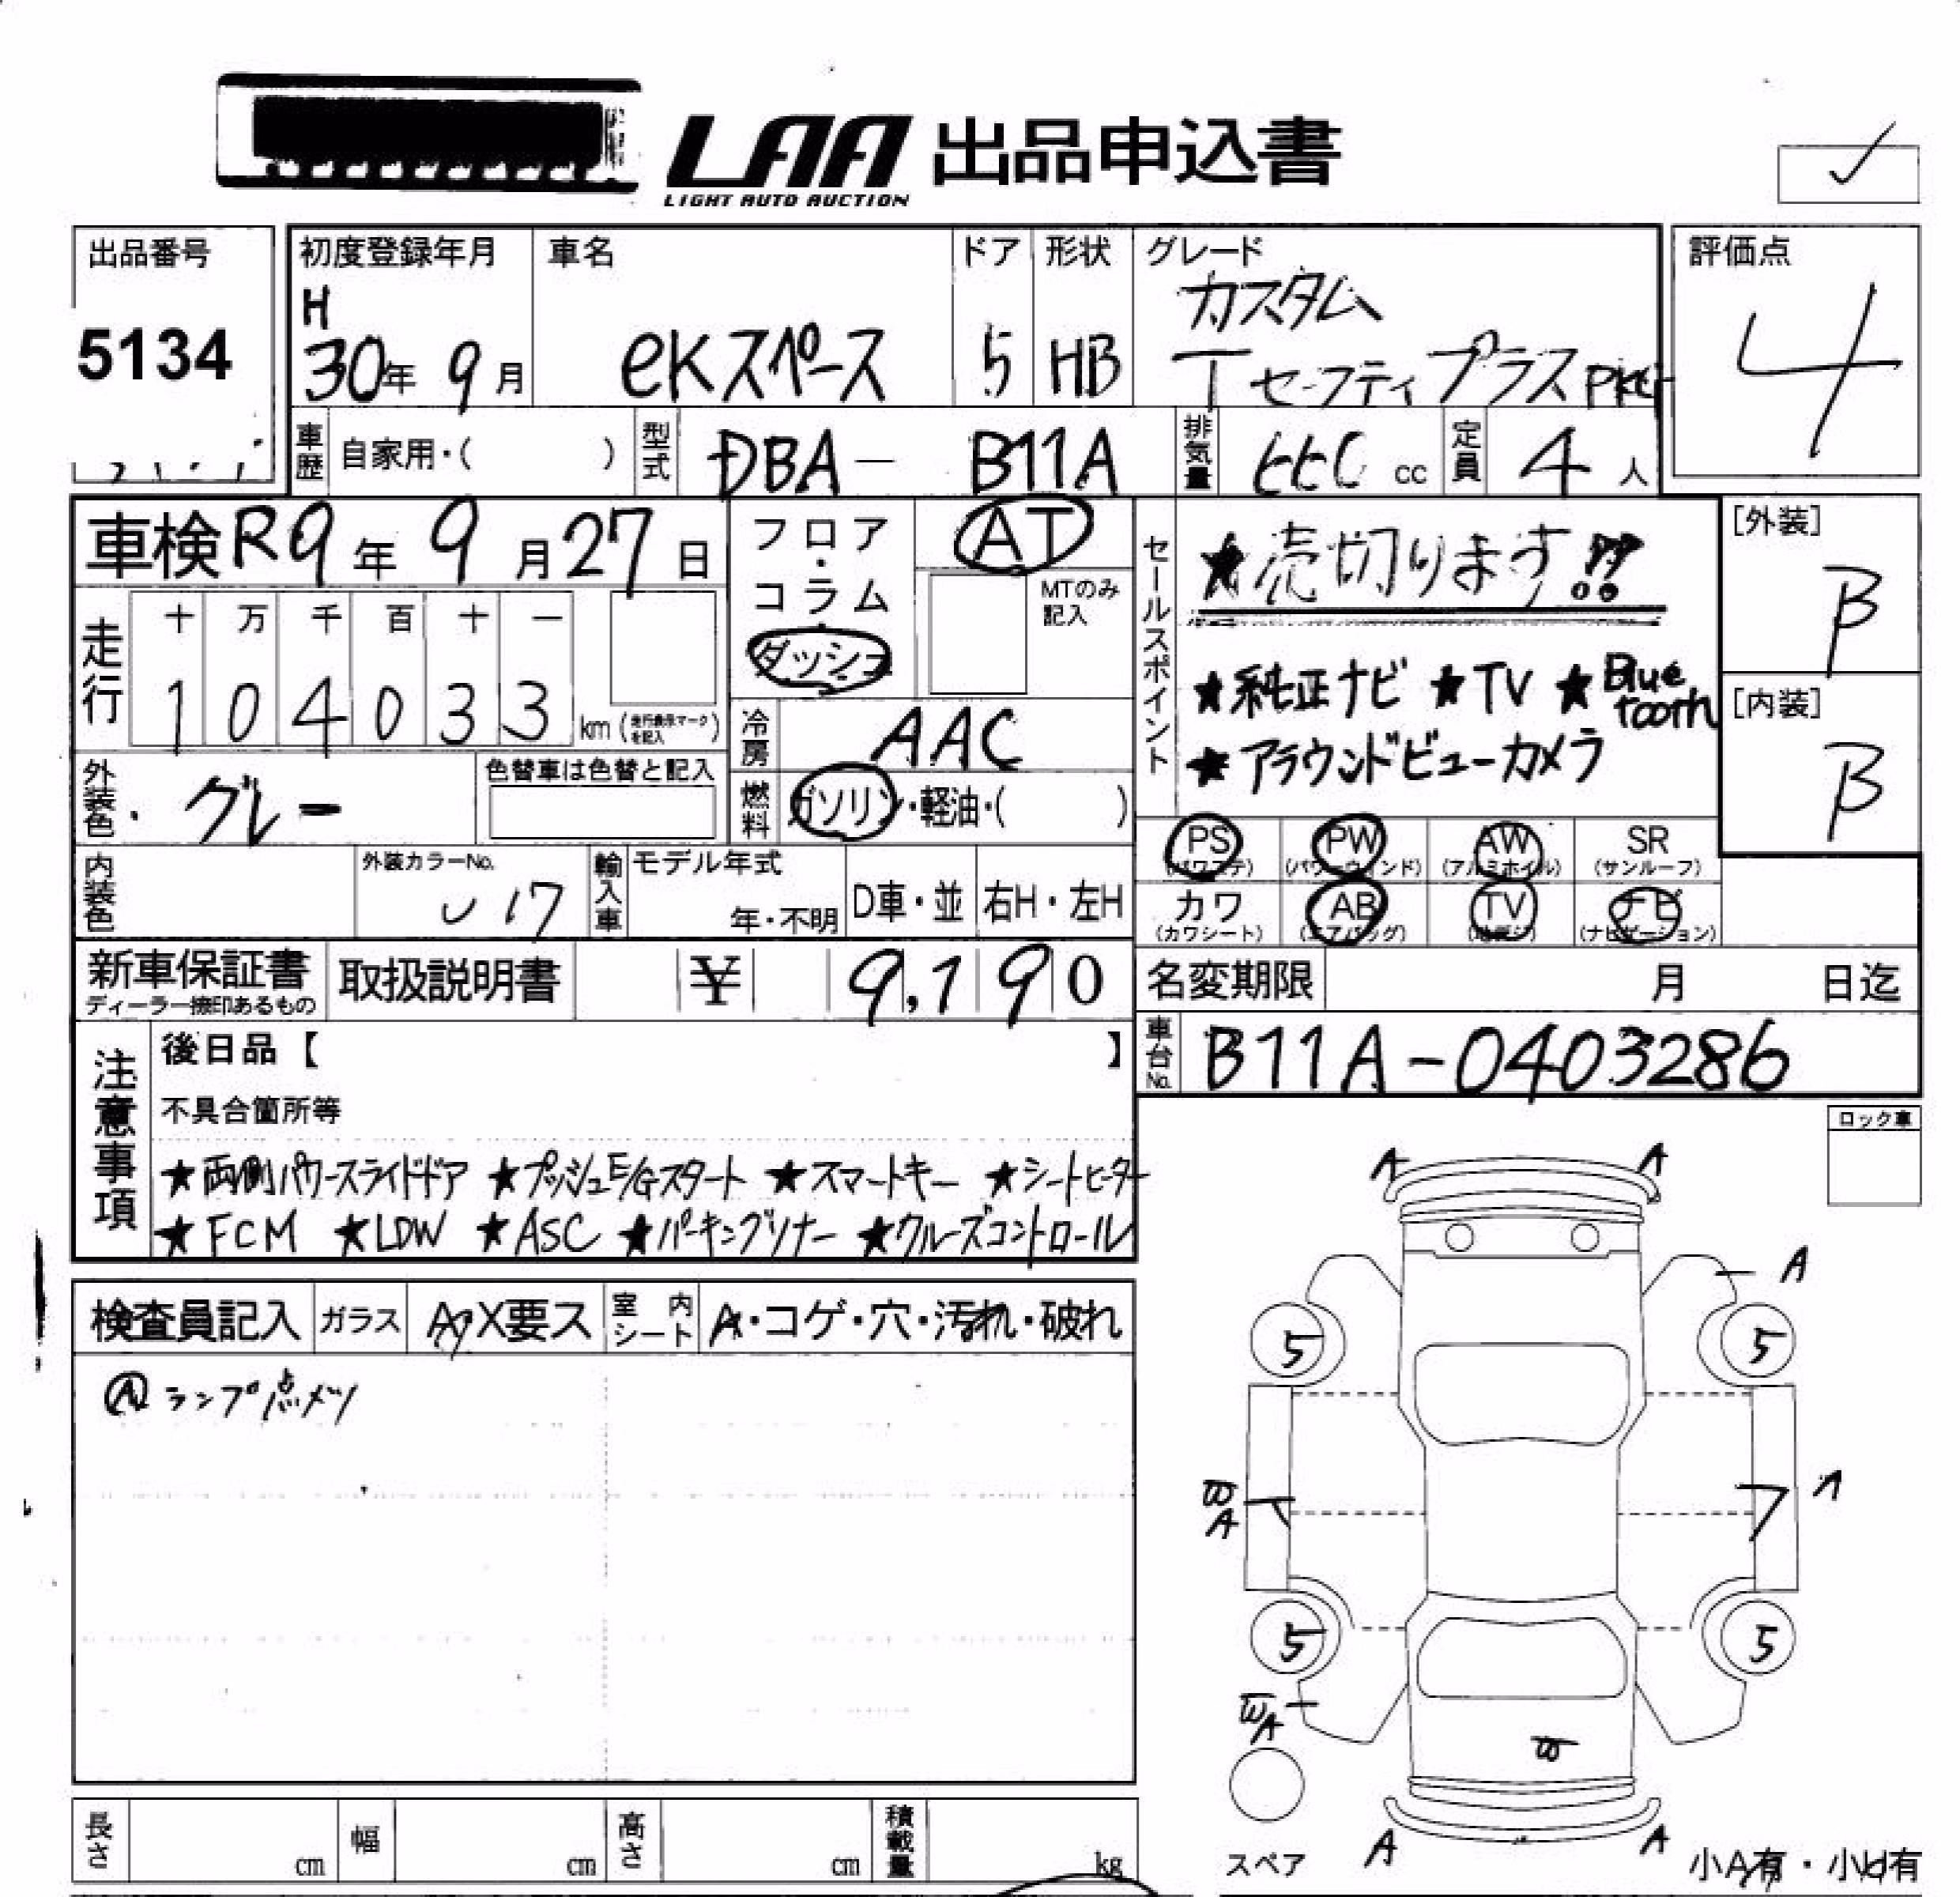 LAA 出品申込書
LIGHT AUTO AUCTION
出品番号
5134
初度登録年月
H
30年 9月
車名
eKスペース
ドア
5
形状
HB
グレード
カスタム
T セーフティプラスPKG
評価点
4
車歴 自家用・( )
型式 DBA- B11A
排気量 660 cc
定員 4 人
車検 R9年 9月27日
走行
十 万 千 百 十 一
1 0 4 0 3 3 km (走行表示マークを記入)
フロア・コラム・ダッシュ
AT
MTのみ記入
冷房 AAC
燃料 ガソリン・軽油・( )
セールスポイント
★売切ります!!
★純正ナビ ★TV ★Bluetooth
★アラウンドビューカメラ
[外装]
B
[内装]
B
外装色 グレー
色替車は色替と記入
内装色
外装カラーNo.
U17
輸入車
モデル年式
年・不明
D車・並
右H・左H
PS (パワステ)
PW (パワーウインド)
AW (アルミホイル)
SR (サンルーフ)
カワ (カワシート)
AB (エアバッグ)
TV
ナビ (ナビゲーション)
新車保証書
ディーラー捺印あるもの
取扱説明書
¥ 9,190
名変期限 月 日迄
車台No. B11A-0403286
注意事項
後日品【 】
不具合箇所等
★両側パワースライドドア ★プッシュE/Gスタート ★スマートキー ★シートヒーター
★FCM ★LDW ★ASC ★パーキングソナー ★クルーズコントロール
ロック車
検査員記入
ガラス
A・X要ス
室内シート
A・コゲ・穴・汚れ・破れ
Ⓐランプ点メツ
A A
A
5 5
A
5 5
A
A
A A
スペア
小A有・小U有
長さ cm
幅 cm
高さ cm
積載量 kg